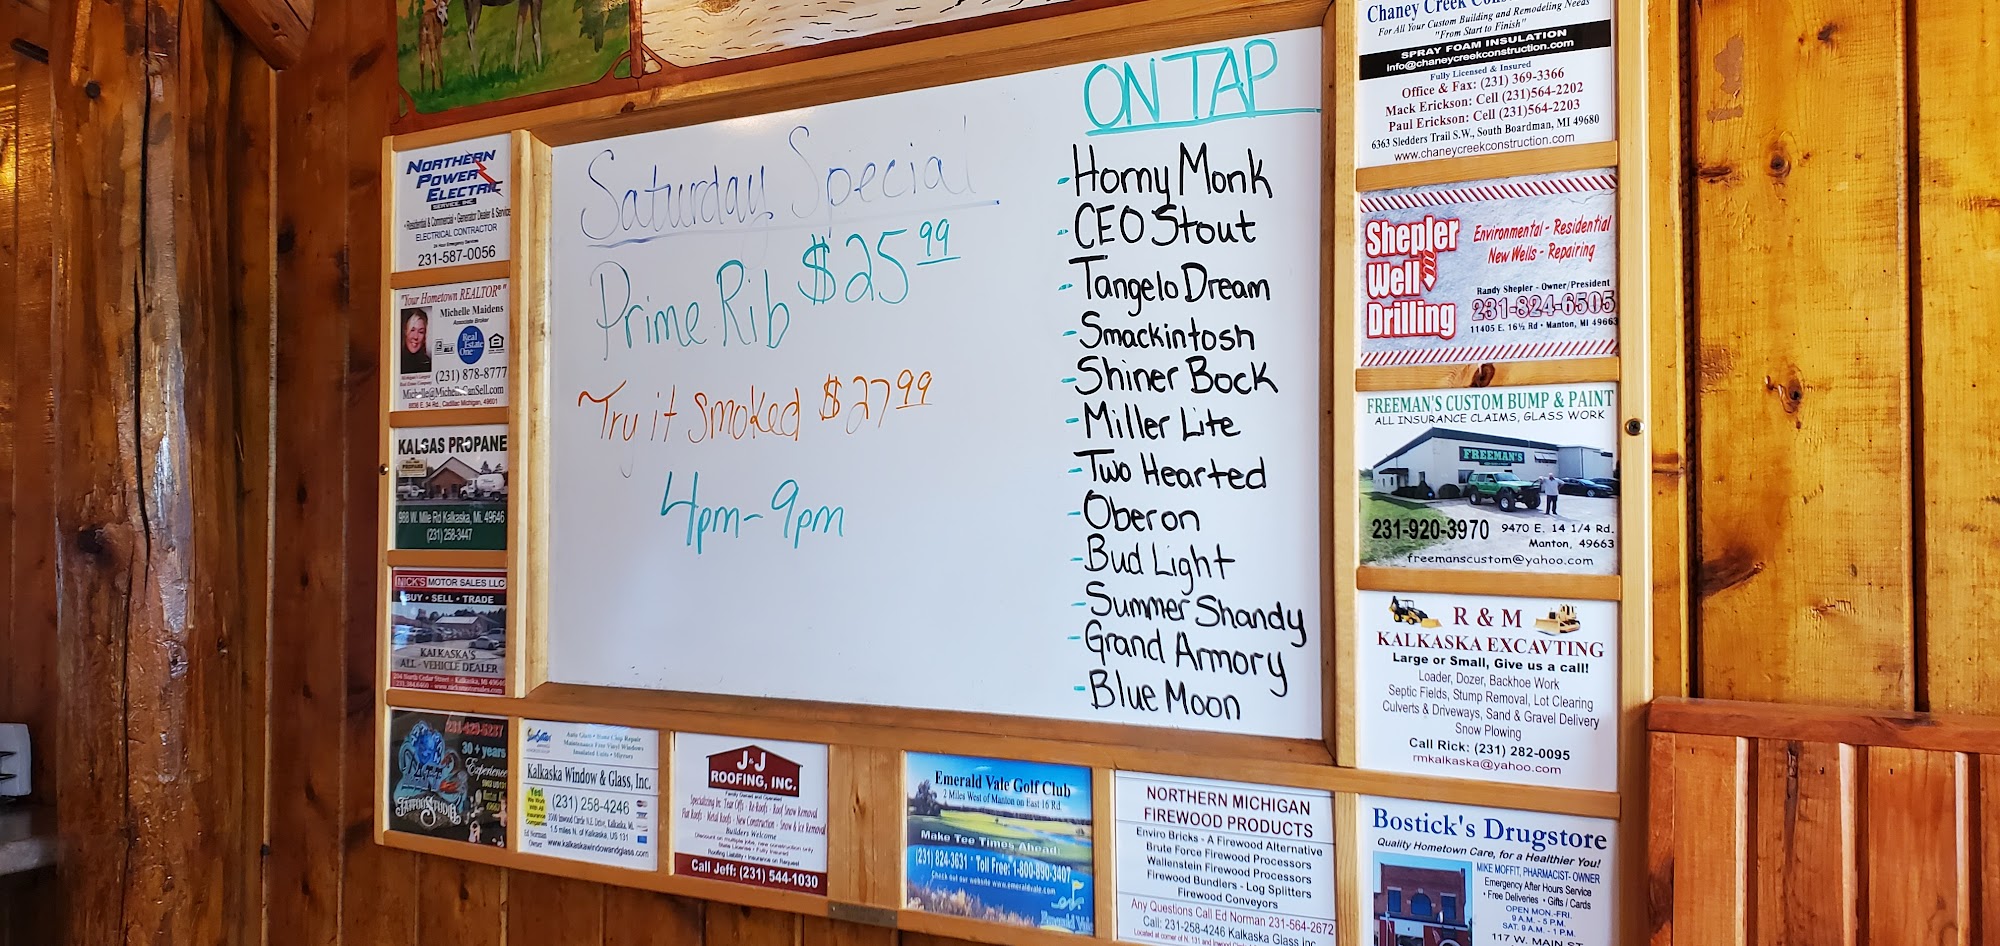 Saturday Special
Prime Rib $25.99
Try it smoked $27.99
4pm-9pm
ON TAP
- Horny Monk
- CEO Stout
- Tangelo Dream
- Smackintosh
- Shiner Bock
- Miller Lite
- Two Hearted
- Oberon
- Bud Light
- Summer Shandy
- Grand Armory
- Blue Moon
NORTHERN
POWER
ELECTRIC
SERVICE, INC.
• Residential & Commercial • Generator Dealer & Service
ELECTRICAL CONTRACTOR
24 Hour Emergency Services
231-587-0056
"Your Hometown REALTOR®"
Michelle Maidens
Associate Broker
Real Estate One
(231) 878-8777
Michelle@MichelleCanSell.com
KALGAS PROPANE
988 W. Mile Rd Kalkaska, Mi. 49646
(231) 258-3447
NICK'S MOTOR SALES LLC
BUY • SELL • TRADE
KALKASKA'S
ALL - VEHICLE DEALER
231-429-5237
30+ years
Experience
Tattoo Studio
Auto Glass • Home Clap Repair
Maintenance Free Vinyl Windows
Insulated Units • Mirrors
Kalkaska Window & Glass, Inc.
Yes!
We Work With All Insurance Companies
(231) 258-4246
1.5 miles N. of Kalkaska, US 131
Ed Norman
Owner
www.kalkaskawindowandglass.com
J&J
ROOFING, INC.
Family Owned and Operated
Specializing In: Tear Offs - Re-Roofs - Roof Snow Removal
Flat Roofs - Metal Roofs - New Construction - Snow & Ice Removal
Builders Welcome
Discount on multiple jobs, new construction only
State License • Fully Insured
Roofing Liability • Insurance on Request
Call Jeff: (231) 544-1030
Emerald Vale Golf Club
2 Miles West of Manton on East 16 Rd.
Make Tee Times Ahead:
(231) 824-3631 * Toll Free: 1-800-890-3407
Check out our website www.emeraldvale.com
Emerald Vale
NORTHERN MICHIGAN
FIREWOOD PRODUCTS
Enviro Bricks - A Firewood Alternative
Brute Force Firewood Processors
Wallenstein Firewood Processors
Firewood Bundlers - Log Splitters
Firewood Conveyors
Any Questions Call Ed Norman 231-564-2672
Call: 231-258-4246 Kalkaska Glass Inc.
Chaney Creek
For All Your Custom Building and Remodeling Needs
"From Start to Finish"
SPRAY FOAM INSULATION
info@chaneycreekconstruction.com
Fully Licensed & Insured
Office & Fax: (231) 369-3366
Mack Erickson: Cell (231)564-2202
Paul Erickson: Cell (231)564-2203
6363 Sledders Trail S.W., South Boardman, MI 49680
www.chaneycreekconstruction.com
Shepler
Well
Drilling
Environmental - Residential
New Wells - Repairing
Randy Shepler - Owner/President
231-824-6505
11405 E. 16½ Rd • Manton, MI 49663
FREEMAN'S CUSTOM BUMP & PAINT
ALL INSURANCE CLAIMS, GLASS WORK
FREEMAN'S
231-920-3970
9470 E. 14 1/4 Rd.
Manton, 49663
freemanscustom@yahoo.com
R & M
KALKASKA EXCAVTING
Large or Small, Give us a call!
Loader, Dozer, Backhoe Work
Septic Fields, Stump Removal, Lot Clearing
Culverts & Driveways, Sand & Gravel Delivery
Snow Plowing
Call Rick: (231) 282-0095
rmkalkaska@yahoo.com
Bostick's Drugstore
Quality Hometown Care, for a Healthier You!
MIKE MOFFIT, PHARMACIST- OWNER
Emergency After Hours Service
• Free Deliveries • Gifts / Cards
OPEN MON.-FRI.
9 A.M. - 5 P.M.
SAT. 9 A.M. - 1 P.M.
117 W. MAIN ST.